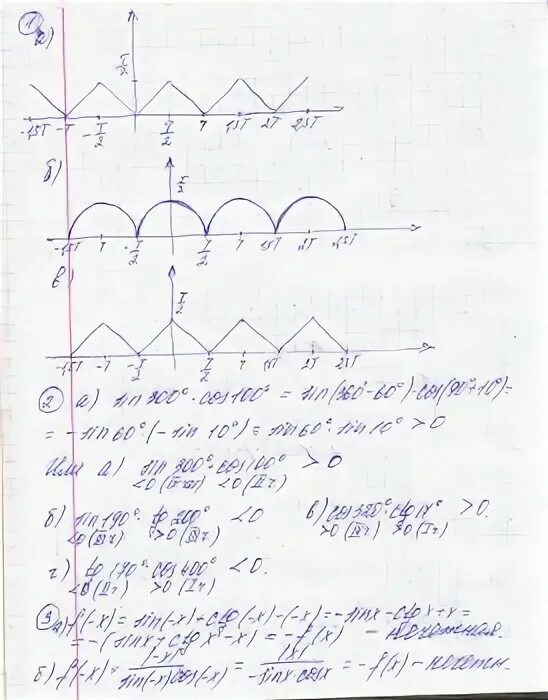 1
а)
T/2
-1,5T -T -T/2 T/2 T 1,5T 2T 2,5T
б)
T/2
-1,5T -T -T/2 T/2 T 1,5T 2T 2,5T
в)
T/2
-1,5T -T -T/2 T/2 T 1,5T 2T 2,5T
2 а) sin 300° · cos 100° = sin(360°-60°)·cos(90°+10°)=
= -sin 60°·(-sin 10°) = sin 60°·sin 10° > 0
Или а) sin 300°·cos 100° > 0
<0 (IV ч) <0 (II ч)
б) sin 190° · tg 200° < 0 в) cos 320°·ctg 17° > 0.
<0 (III ч) >0 (III ч) >0 (IV ч) >0 (I ч)
г) tg 170°·cos 400° < 0.
<0 (II ч) >0 (I ч)
3 а) f(-x) = sin(-x)+ctg(-x)-(-x) = -sin x - ctg x + x =
= -(sin x + ctg x - x) = -f(x) - нечетная.
б) f(-x) = |-x|/sin(-x)cos(-x) = |x|/-sin x cos x = -f(x) - нечетн.